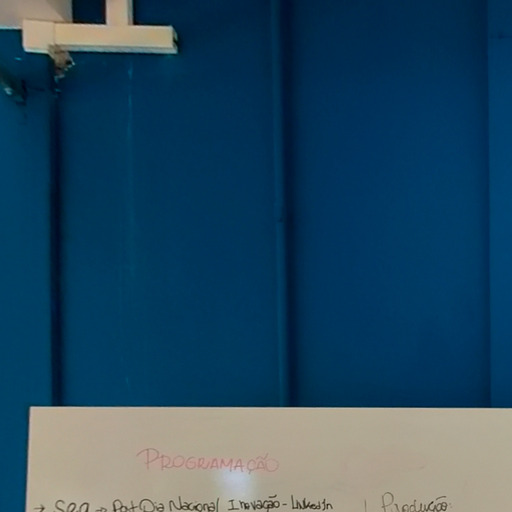 PROGRAMAÇÃO
→ Seg → Post Dia Nacional Inovação - Linkedin | Produção: